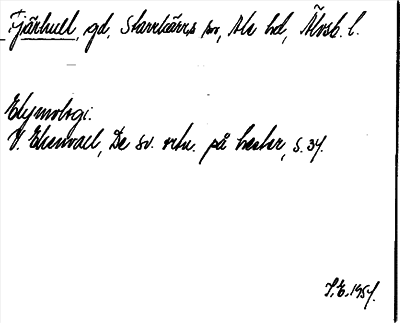 Fjärhull, gd, Starrkärrs sn, Ale hd, Älvsb. l.
Etymologi.
V. Ekenvall, De sv. ortn. på hester, s. 37.
I. E. 1957.